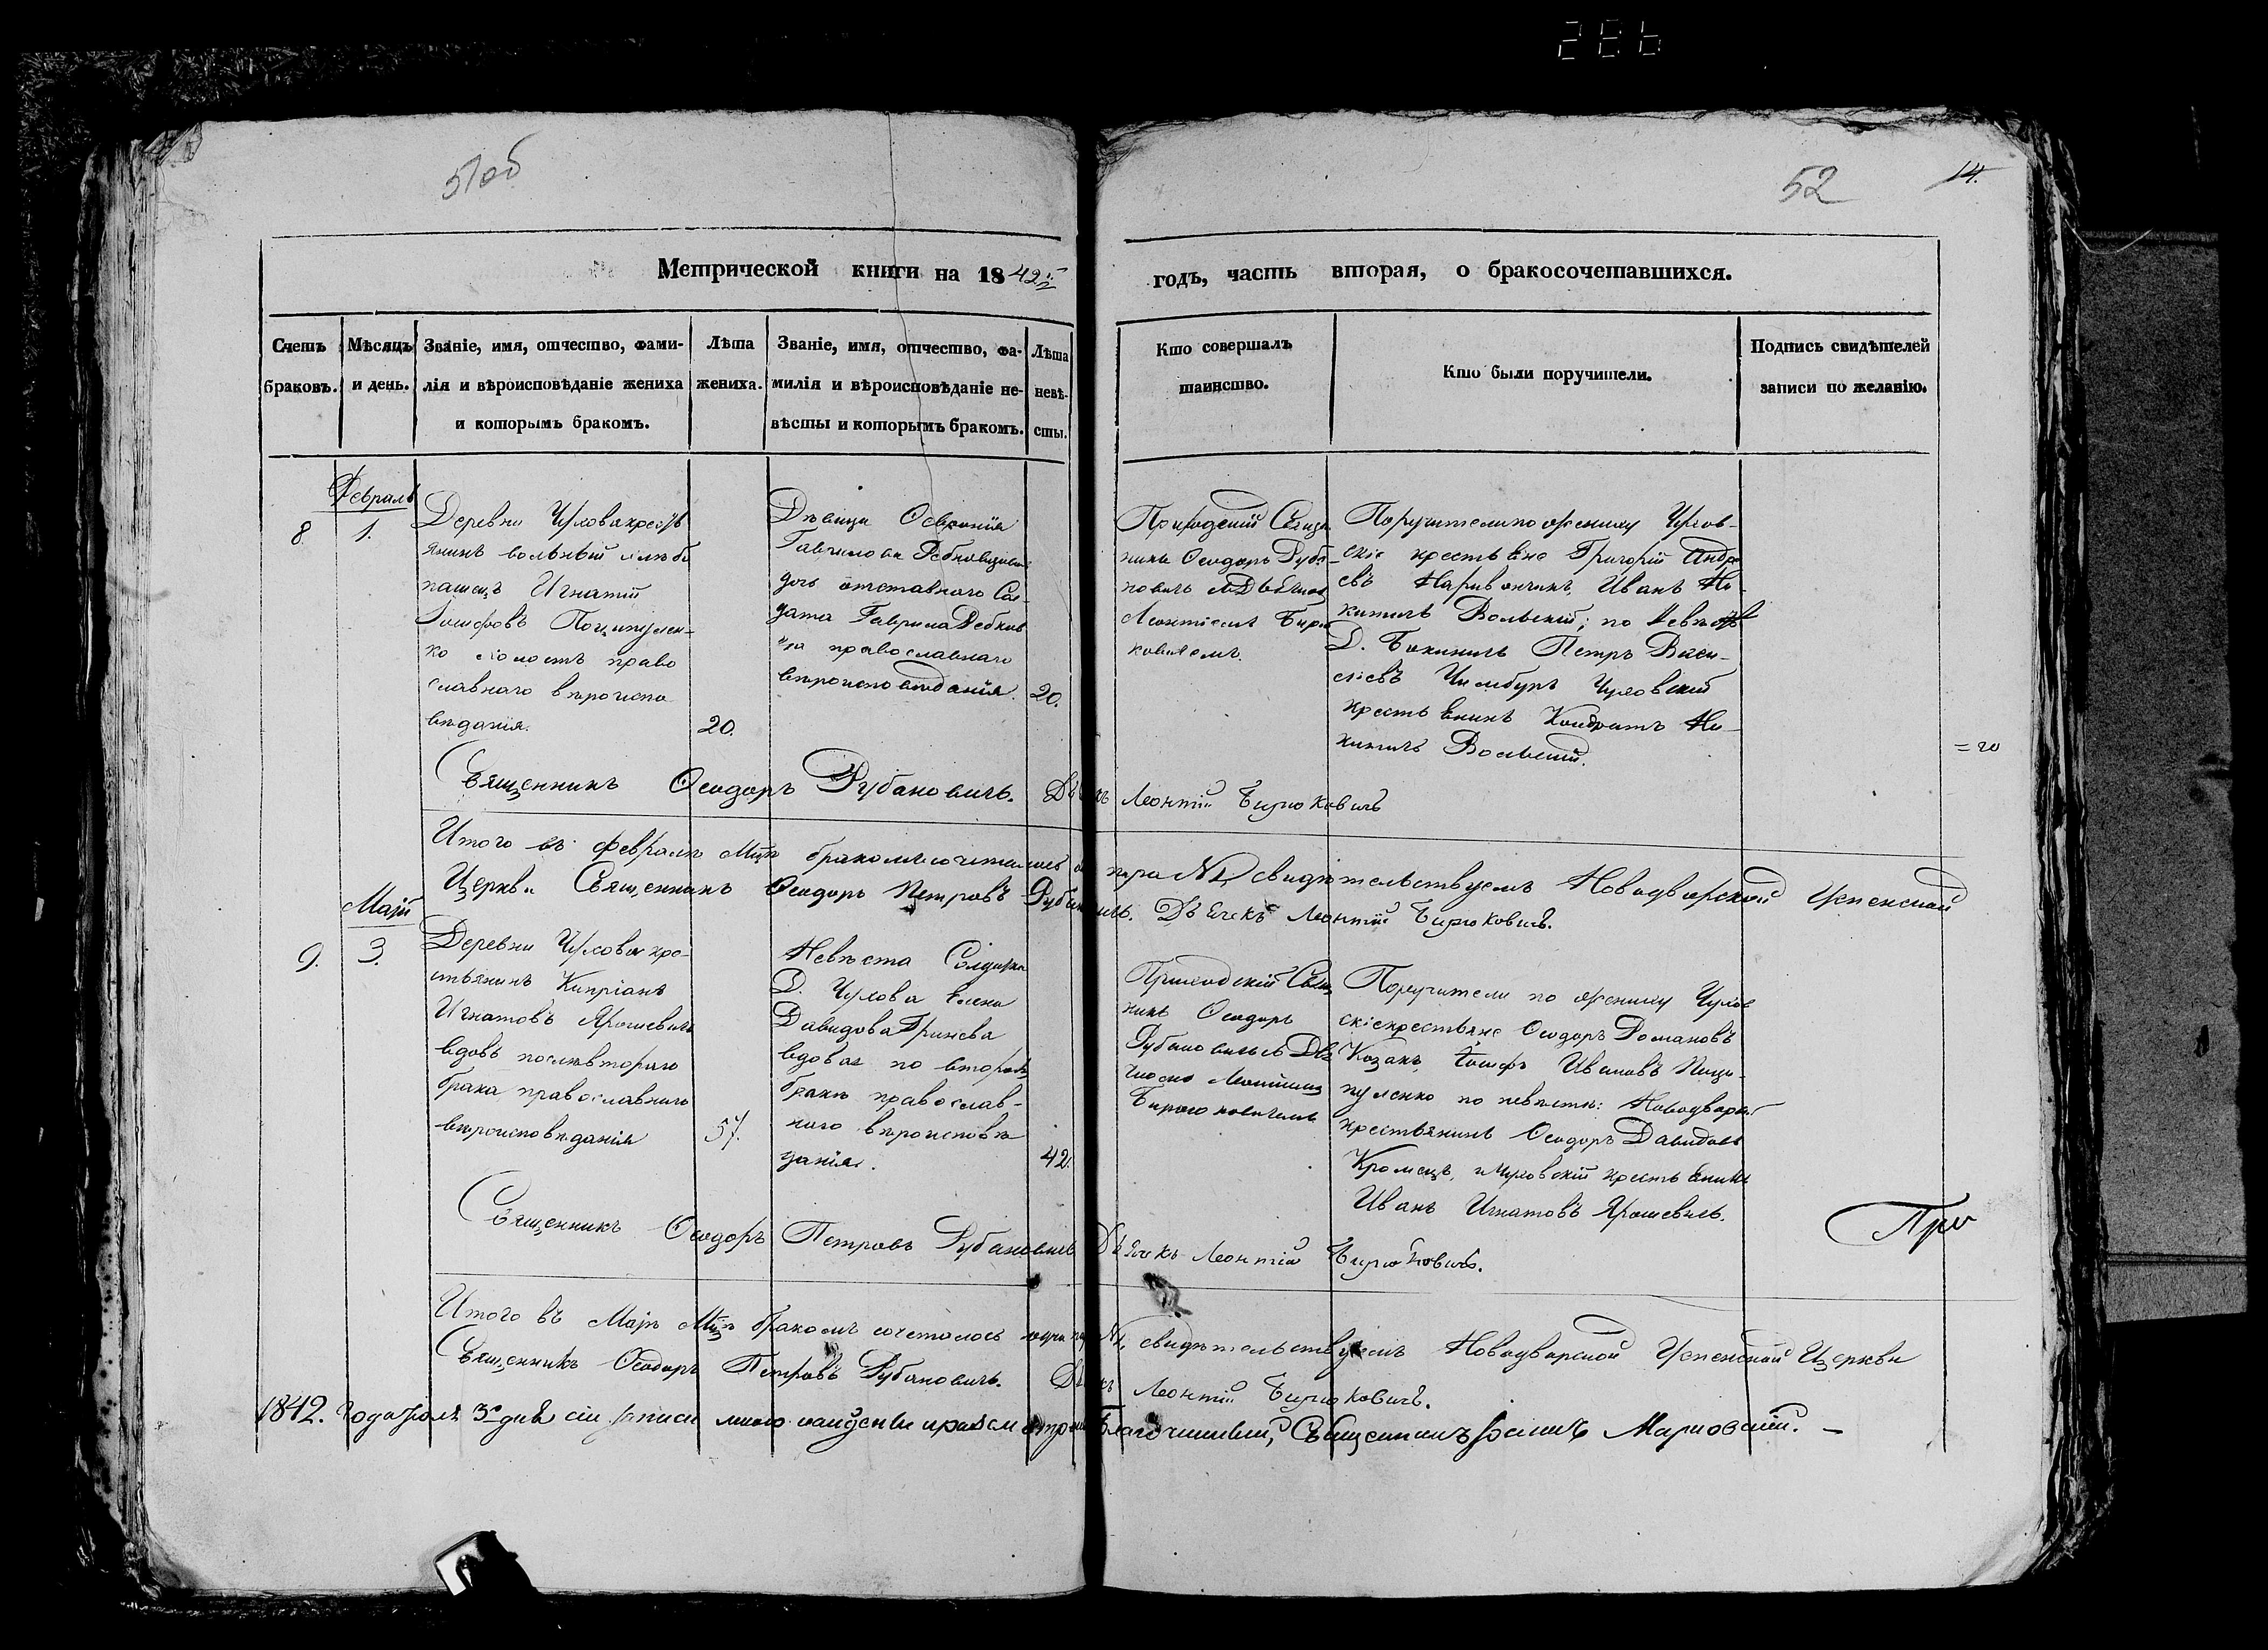 286
51об
52
14.
Метрической книги на 1842
годъ, часть вторая, о бракосочетавшихся.
Счетъ
браковъ.
Мѣсяцъ
и день.
Званіе, имя, отчество, фами-
лія и вѣроисповѣданіе жениха
и которымъ бракомъ.
Лѣта
жениха.
Званіе, имя, отчество, фа-
милія и вѣроисповѣданіе не-
вѣсты и которымъ бракомъ.
Лѣта
невѣ-
сты.
Кто совершалъ
таинство.
Кто были поручители.
Подпись свидѣтелей
записи по желанію.
Февраль
8.
1.
Деревни Чухова крестъ
янинъ вольный хлѣбо
пашецъ Игнатій
Іосифовъ Поципулен-
ко холостъ право
славнаго вѣроиспо
вѣданія.
20.
Дѣвица
Гаврилова
дочь отставнаго Сол-
дата Гаврила
православнаго
вѣроисповѣданія.
20.
Приходскій Свящ
никъ Ѳеодоръ Руба
новичь
Леонтіемъ Бирю
ковичемъ.
Поручители по женику Чухов-
скіе крестьяне Григорій Андре
евъ Иванъ Ни-
китичь Вольскій; по невѣстѣ
Д. Петръ Васи-
ліевъ Чухов скій
крестьянинъ Кондратъ Ни-
китичь Вольскій.
Священникъ Ѳеодоръ Рубановичь. Дьячекъ Леонтій Бирюковичь
Итого въ февралѣ мцѣ бракомъ сочеталось пара №1, свидѣтельствуемъ Новодворской Успенской
Церкви Священникъ Ѳеодоръ Петровъ Рубановичь. Дьячекъ Леонтій Бирюковичь.
Маій
9.
3.
Деревни Чухова кре-
стьянинъ Кипріанъ
Игнатовъ Ярошевичь
вдовъ послѣ втораго
брака православнаго
вѣроисповѣданія
57.
Невѣста Солдатка
Д. Чухова Елена
Давидова Гринева
вдовая по второмъ
бракѣ православ-
наго вѣроисповѣ
данія.
42.
Приходскій Свящ
никъ Ѳеодоръ
Рубановичь съ Дья
Бирюковичемъ
Поручители по женику Чухов
скіе крестьяне Ѳеодоръ Романовъ
Козакъ, Іосифъ Ивановъ Поци-
пуленко по невѣстѣ: Новодворскі
крестьянинъ Ѳеодоръ Давидовъ
Кромецъ, и Чуховскій крестьянинъ
Иванъ Игнатовъ Ярошевичь.
Священникъ Ѳеодоръ Петровъ Рубановичь Дьячекъ Леонтій Бирюковичь.
При
Итого въ Маіѣ Мцѣ бракомъ сочеталось одна пара №1, свидѣтельствуемъ Новодворской Успенской Церкви
Священникъ Ѳеодоръ Петровъ Рубановичь. Дьячекъ Леонтій Бирюковичь.
1842. года 3 дня сіи записи мною Благочинный, Священникъ Іоаннъ Марковскій.